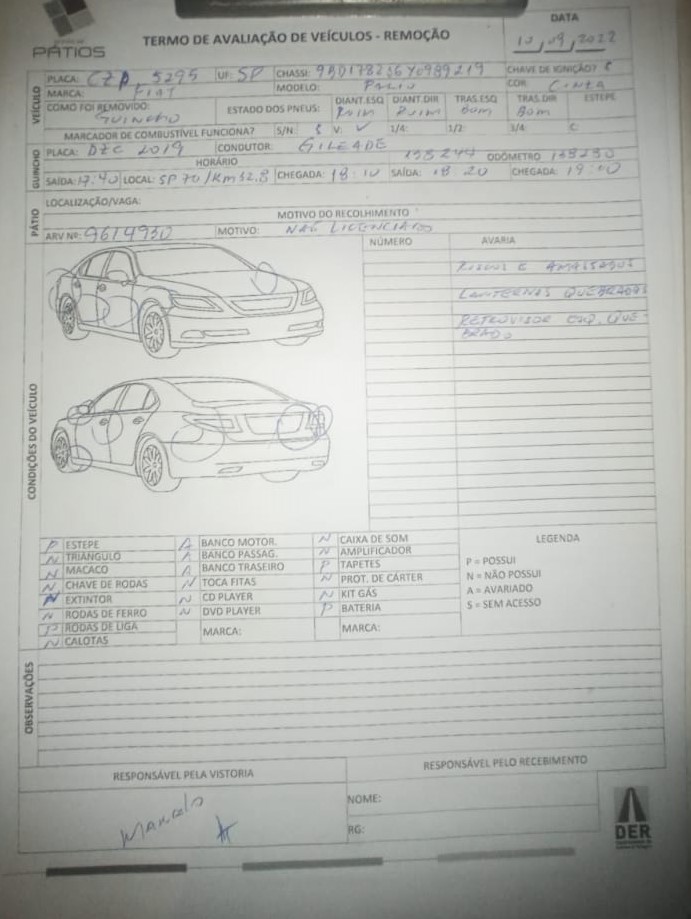 DATA
PÁTIOS
TERMO DE AVALIAÇÃO DE VEÍCULOS - REMOÇÃO
10,09,2022
VEÍCULO
PLACA: CZP 5295 UF: SP CHASSI: CHAVE DE IGNIÇÃO?
MARCA: FIAT MODELO: PALIO COR: CINZA
COMO FOI REMOVIDO: GUINCHO ESTADO DOS PNEUS: DIANT.ESQ RUIM DIANT.DIR RUIM TRAS.ESQ BOM TRAS.DIR BOM ESTEPE
MARCADOR DE COMBUSTÍVEL FUNCIONA? S/N: V: 1/4: 1/2: 3/4: C
GUINCHO
PLACA: DZC 2019 CONDUTOR: GILEADE
HORÁRIO 138244 ODÔMETRO 138290
SAÍDA: 17:40 LOCAL: SP 70/KM 32,8 CHEGADA: 18:10 SAÍDA: 18 20 CHEGADA: 19:00
PÁTIO
LOCALIZAÇÃO/VAGA:
MOTIVO DO RECOLHIMENTO
ARV Nº: 9614930 MOTIVO: NÃO LICENCIADO
CONDIÇÕES DO VEÍCULO
NÚMERO AVARIA
RISCOS E AMASSADOS
LANTERNAS QUEBRADAS
RETROVISOR ESQ. QUE-
BRADO
P ESTEPE A BANCO MOTOR. N CAIXA DE SOM LEGENDA
N TRIÂNGULO A BANCO PASSAG. N AMPLIFICADOR
N MACACO A BANCO TRASEIRO P TAPETES P = POSSUI
N CHAVE DE RODAS N TOCA FITAS N PROT. DE CÁRTER N = NÃO POSSUI
N EXTINTOR N CD PLAYER N KIT GÁS A = AVARIADO
N RODAS DE FERRO N DVD PLAYER P BATERIA S = SEM ACESSO
P RODAS DE LIGA MARCA: MARCA:
N CALOTAS
OBSERVAÇÕES
RESPONSÁVEL PELA VISTORIA RESPONSÁVEL PELO RECEBIMENTO
Marcelo
NOME:
RG:
DER